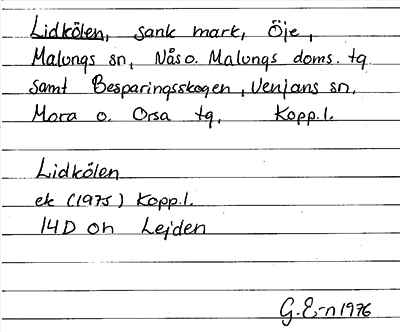 Lidkölen, sank mark, Öje,
Malungs sn, Nås o. Malungs doms. tg
samt Besparingsskogen, Venjans sn,
Mora o. Orsa tg, Kopp.l.
Lidkölen
ek (1975) Kopp.l.
14D 0h Lejden
G.E-n 1976